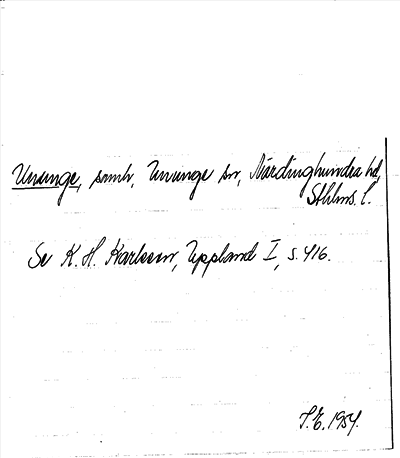 Ununge, snmb, Ununge sn, Närdinghundra hd,
Sthlms. l.
Se K. H. Karlsson, Uppland I, s. 416.
T.E. 1954.